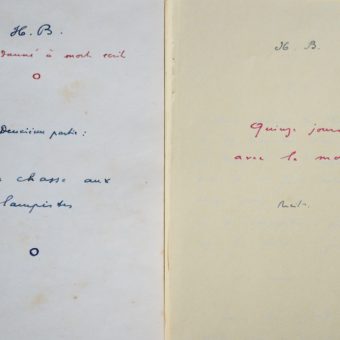 H. B.
damné à mort écrit
Deuxième partie :
chasse aux
lampistes
H. B.
Quinze jour
avec la mo
Récit.